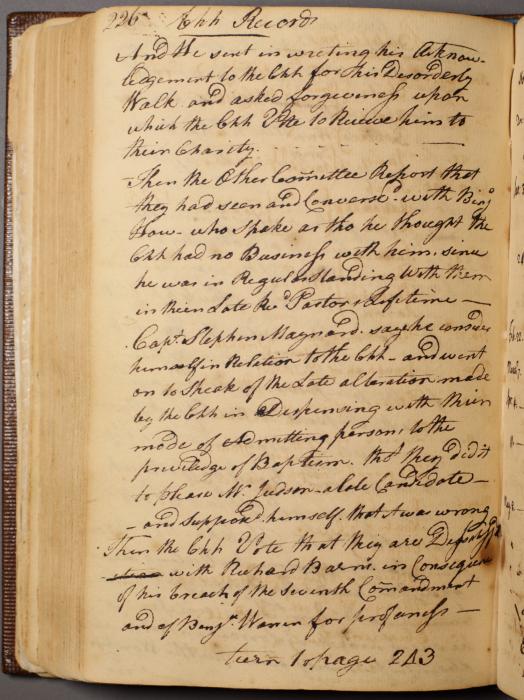 226 Chh Records
And He sent in wreting his Acknow-
ledgement to the Chh for his Disorderly
Walk and asked forgiveness upon
which the Chh Vote to Recieve him to
their Charity.
Then the Other Committee Report that
they had seen and Convers'd with Benjn
How - who spake as tho he thought the
Chh had no Business with him, since
he was in Regular standing With them
in their Late Revd Pastors Lifetime —
Capt. Stephen Maynard. says he consider
himself in Relation to the Chh - and went
on to Speak of the Late alteration made
by the Chh in Dispensing with their
mode of admitting persons to the
priviledge of Baptism. that they did it
to please Mr. Judson - a late Candidate —
- and supposd himself. that it was wrong
Then the Chh Vote that they are
with Richard Barns. in Consequence
of his breach of the Seventh Comandment
and of Benjn. Warren for profaness —
turn to page 243